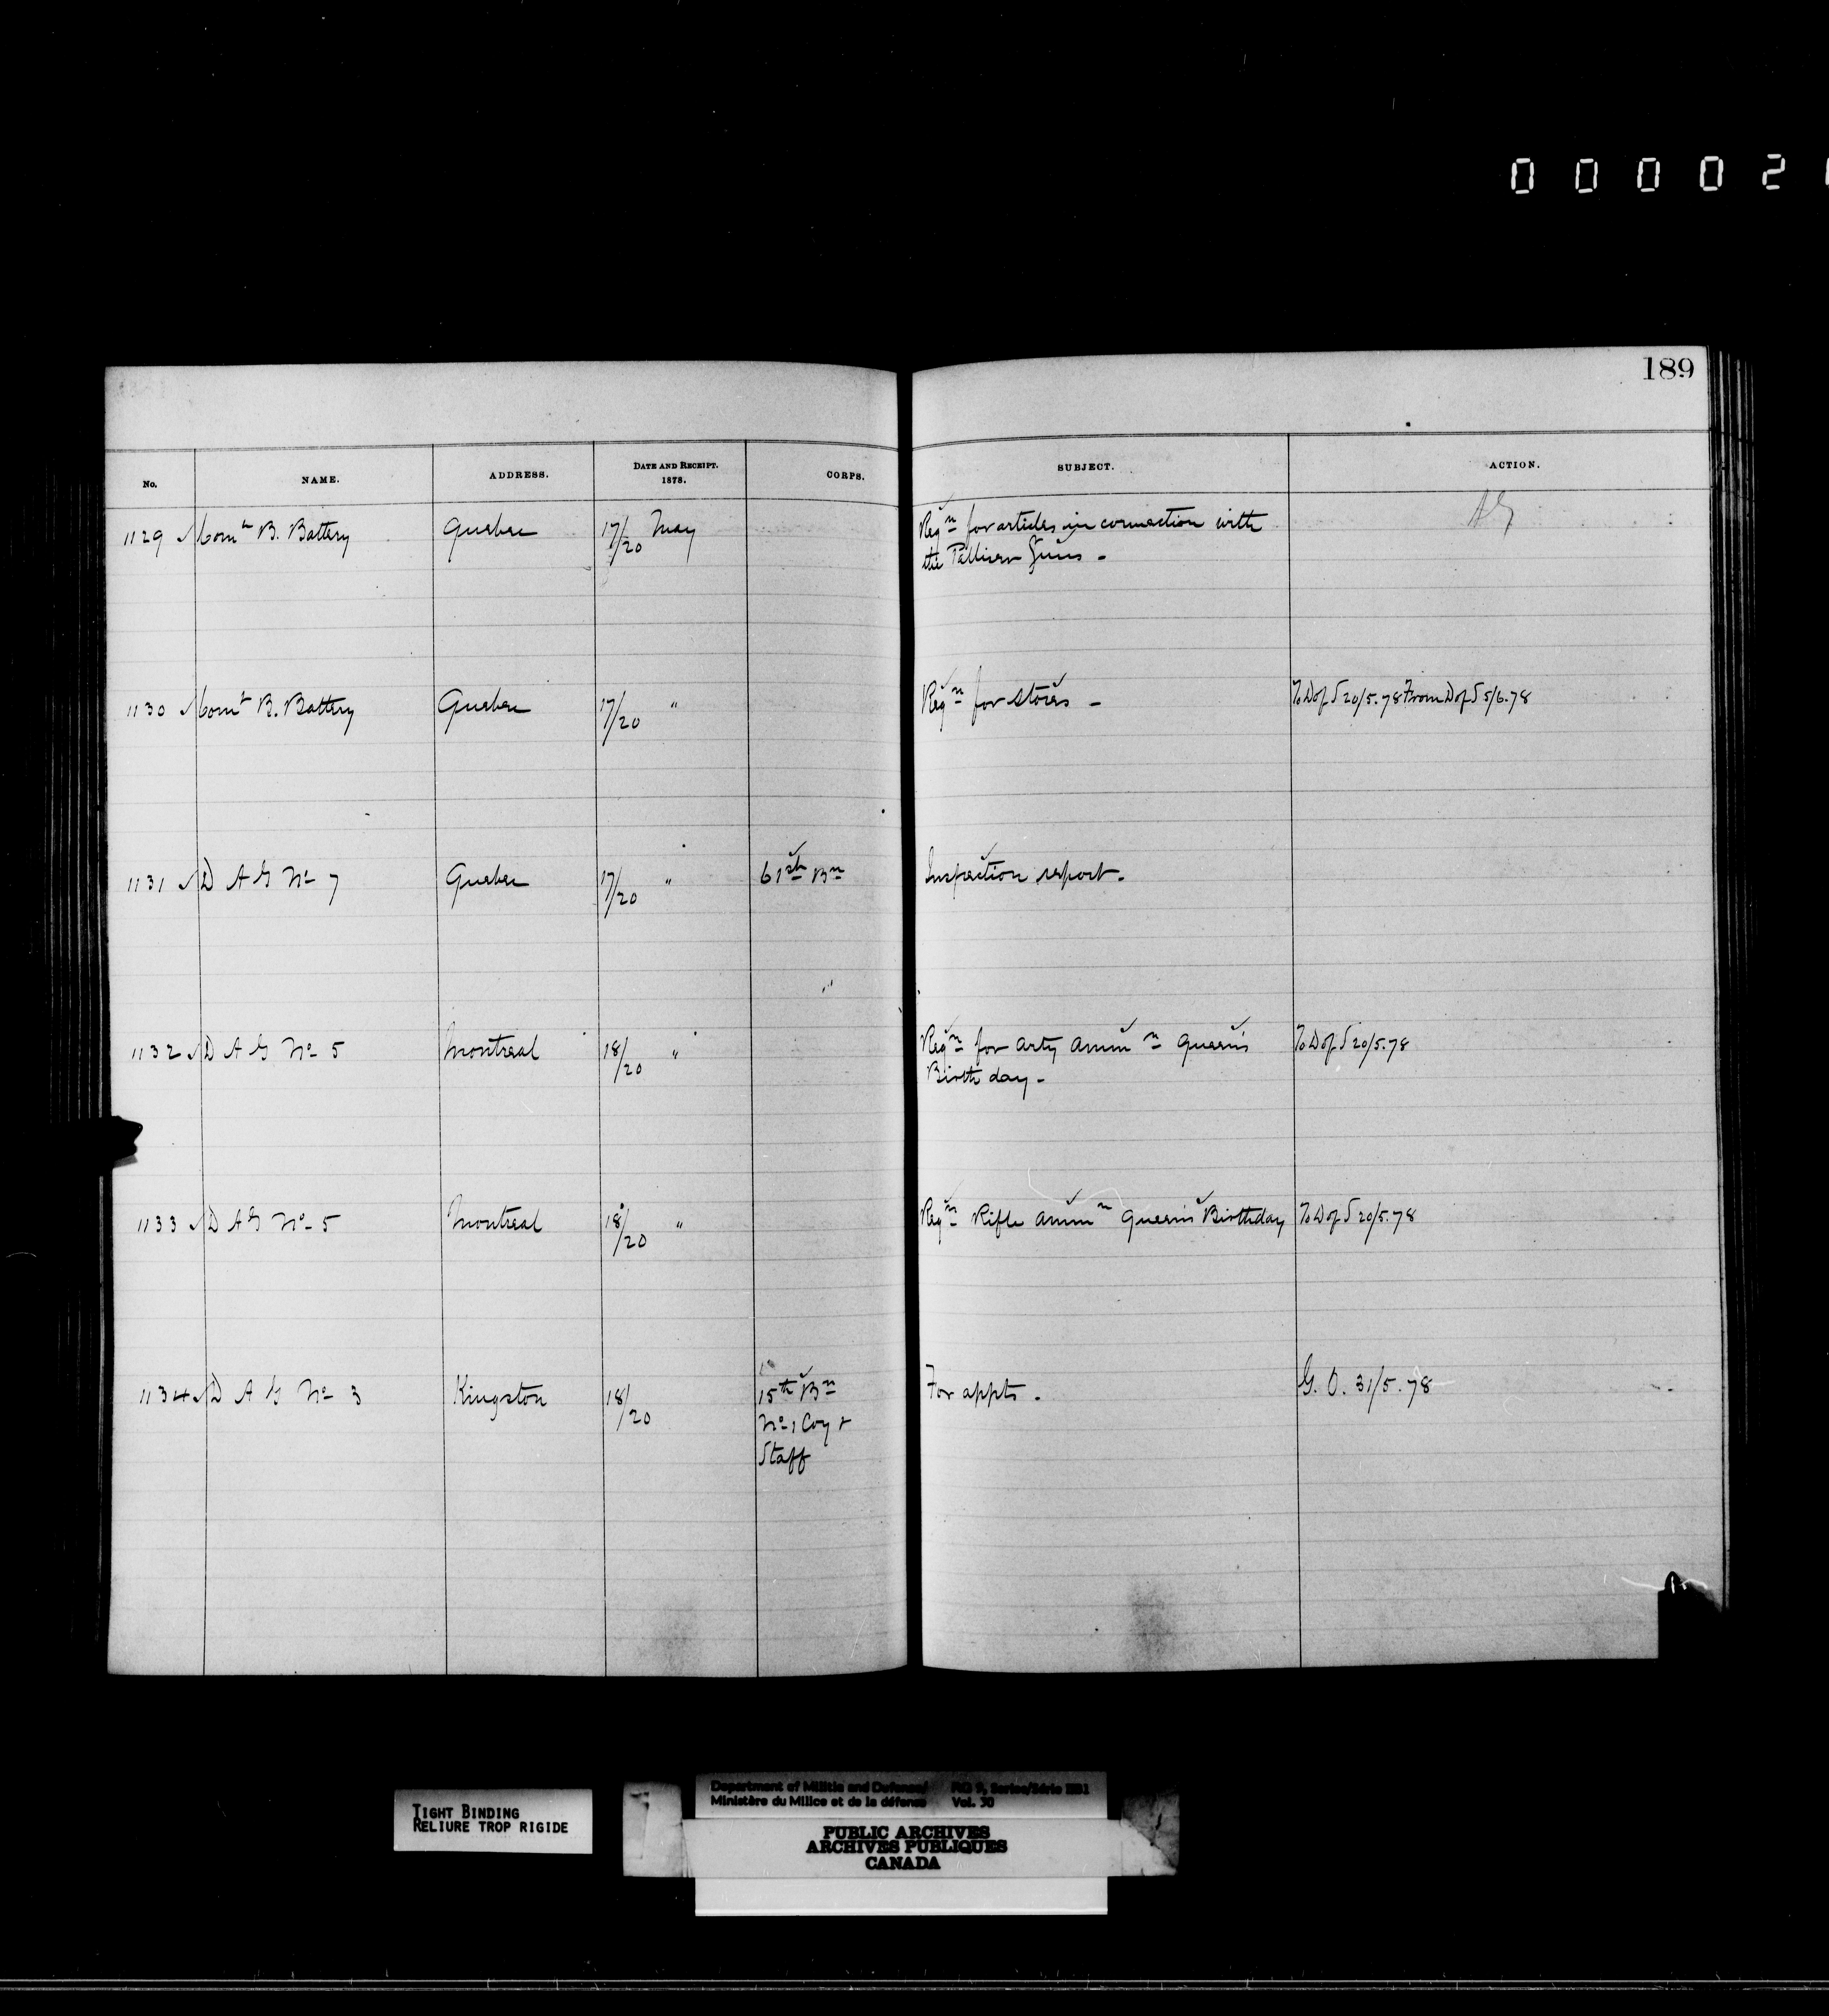 0 0 0 0 2
189
No. NAME. ADDRESS. DATE AND RECEIPT. 1878. CORPS. SUBJECT. ACTION.
1129 Comt B. Battery Quebec 17/20 May Reqn for articles in connection with AG
the Palliser Guns -
1130 Comt B. Battery Quebec 17/20 " Reqn for stores - To D of S 20/5.78 From D of S 5/6.78
1131 D A G No 7 Quebec 17/20 " 61st Bn Inspection report.
1132 D A G No 5 Montreal 18/20 " Reqn for Arty Ammn Queen's To D of S 20/5.78
Birth day -
1133 D A G No 5 Montreal 18/20 " Reqn Rifle Ammn Queen's Birthday To D of S 20/5.78
1134 D A G No 3 Kingston 18/20 15th Bn For appts. G. O. 31/5.78
No 1 Coy &
Staff
TIGHT BINDING
RELIURE TROP RIGIDE
Department of Militia and Defence/ RG 9, Series/Série IIB1
Ministère du Milice et de la défense Vol. 30
PUBLIC ARCHIVES
ARCHIVES PUBLIQUES
CANADA